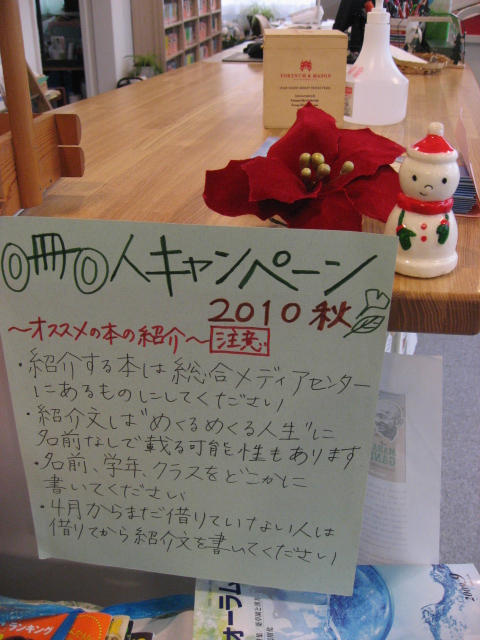 FORTNUM & MASON
◎冊◎人キャンペーン
2010 秋
〜オススメの本の紹介〜 注意
・紹介する本は総合メディアセンター
にあるものにしてください
・紹介文は"めくるめくる人生"に
名前なしで載る可能性もあります
・名前、学年、クラスをどこかに
書いてください
・4月からまだ借りていない人は
借りてから紹介文を書いてください
ランキング
ォーラム